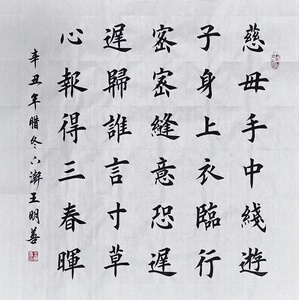 慈母手中綫遊
子身上衣臨行
密密縫意恐遲
遲歸誰言寸草
心報得三春暉
辛丑年腊冬王明善